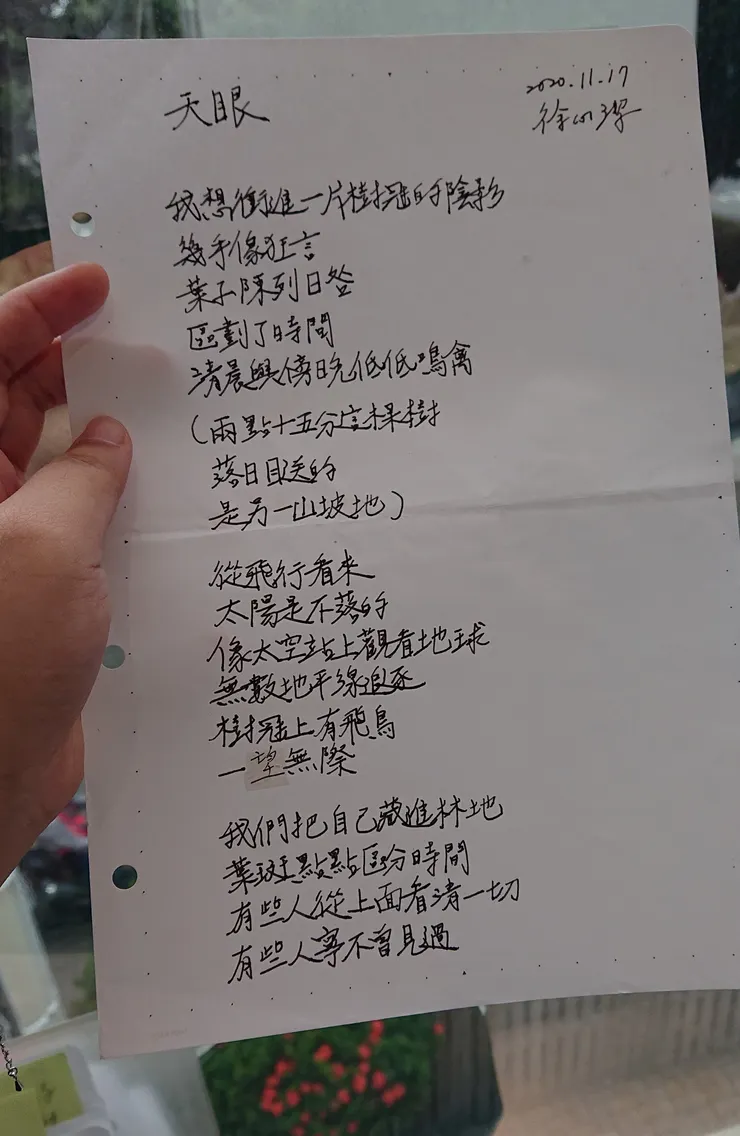 天眼
2020.11.17
徐
我想衝進一片樹冠的陰影
幾乎像狂言
葉子陳列日晷
區劃了時間
清晨與傍晚低低鳴禽
(兩點十五分這棵樹
落日目送的
是另一山坡地)
從飛行看來
太陽是不落的
像太空站上觀看地球
無數地平線追逐
樹冠上有飛鳥
一望無際
我們把自己藏進林地
葉斑點點區分時間
有些人從上面看清一切
有些人寧不曾見過